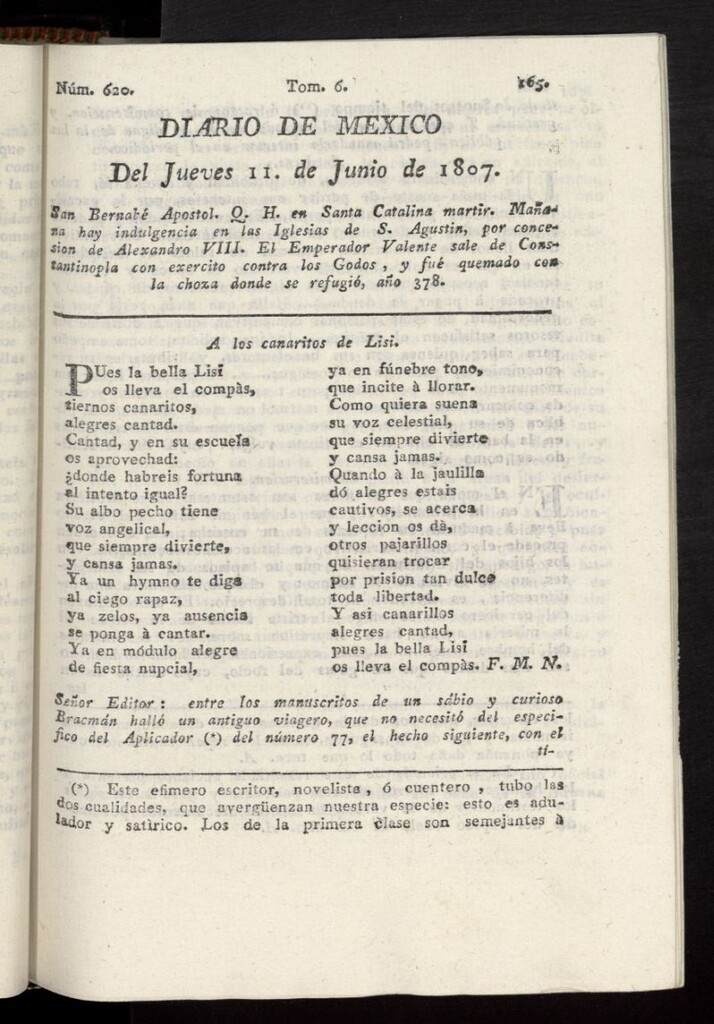 Núm. 620. Tom. 6. 165.
DIARIO DE MEXICO
Del Jueves 11. de Junio de 1807.
San Bernabé Apostol. Q. H. en Santa Catalina martir. Maña-
na hay indulgencia en las Iglesias de S. Agustin, por conce-
sion de Alexandro VIII. El Emperador Valente sale de Cons-
tantinopla con exercito contra los Godos, y fué quemado con
la choza donde se refugió, año 378.
A los canaritos de Lisi.
PUes la bella Lisi
os lleva el compàs,
tiernos canaritos,
alegres cantad.
Cantad, y en su escuela
os aprovechad:
¿donde habreis fortuna
al intento igual?
Su albo pecho tiene
voz angelical,
que siempre divierte,
y cansa jamas.
Ya un hymno te diga
al ciego rapaz,
ya zelos, ya ausencia
se ponga à cantar.
Ya en módulo alegre
de fiesta nupcial,
ya en fúnebre tono,
que incite à llorar.
Como quiera suena
su voz celestial,
que siempre divierte
y cansa jamas.
Quando à la jaulilla
dó alegres estais
cautivos, se acerca
y leccion os dà,
otros pajarillos
quisieran trocar
por prision tan dulce
toda libertad.
Y asi canarillos
alegres cantad,
pues la bella Lisi
os lleva el compàs. F. M. N.
Señor Editor: entre los manuscritos de un sábio y curioso
Bracmán halló un antiguo viagero, que no necesitó del especi-
fico del Aplicador (*) del número 77, el hecho siguiente, con el
ti-
(*) Este efimero escritor, novelista, ó cuentero, tubo las
dos cualidades, que avergüenzan nuestra especie: esto es adu-
lador y satìrico. Los de la primera clase son semejantes à